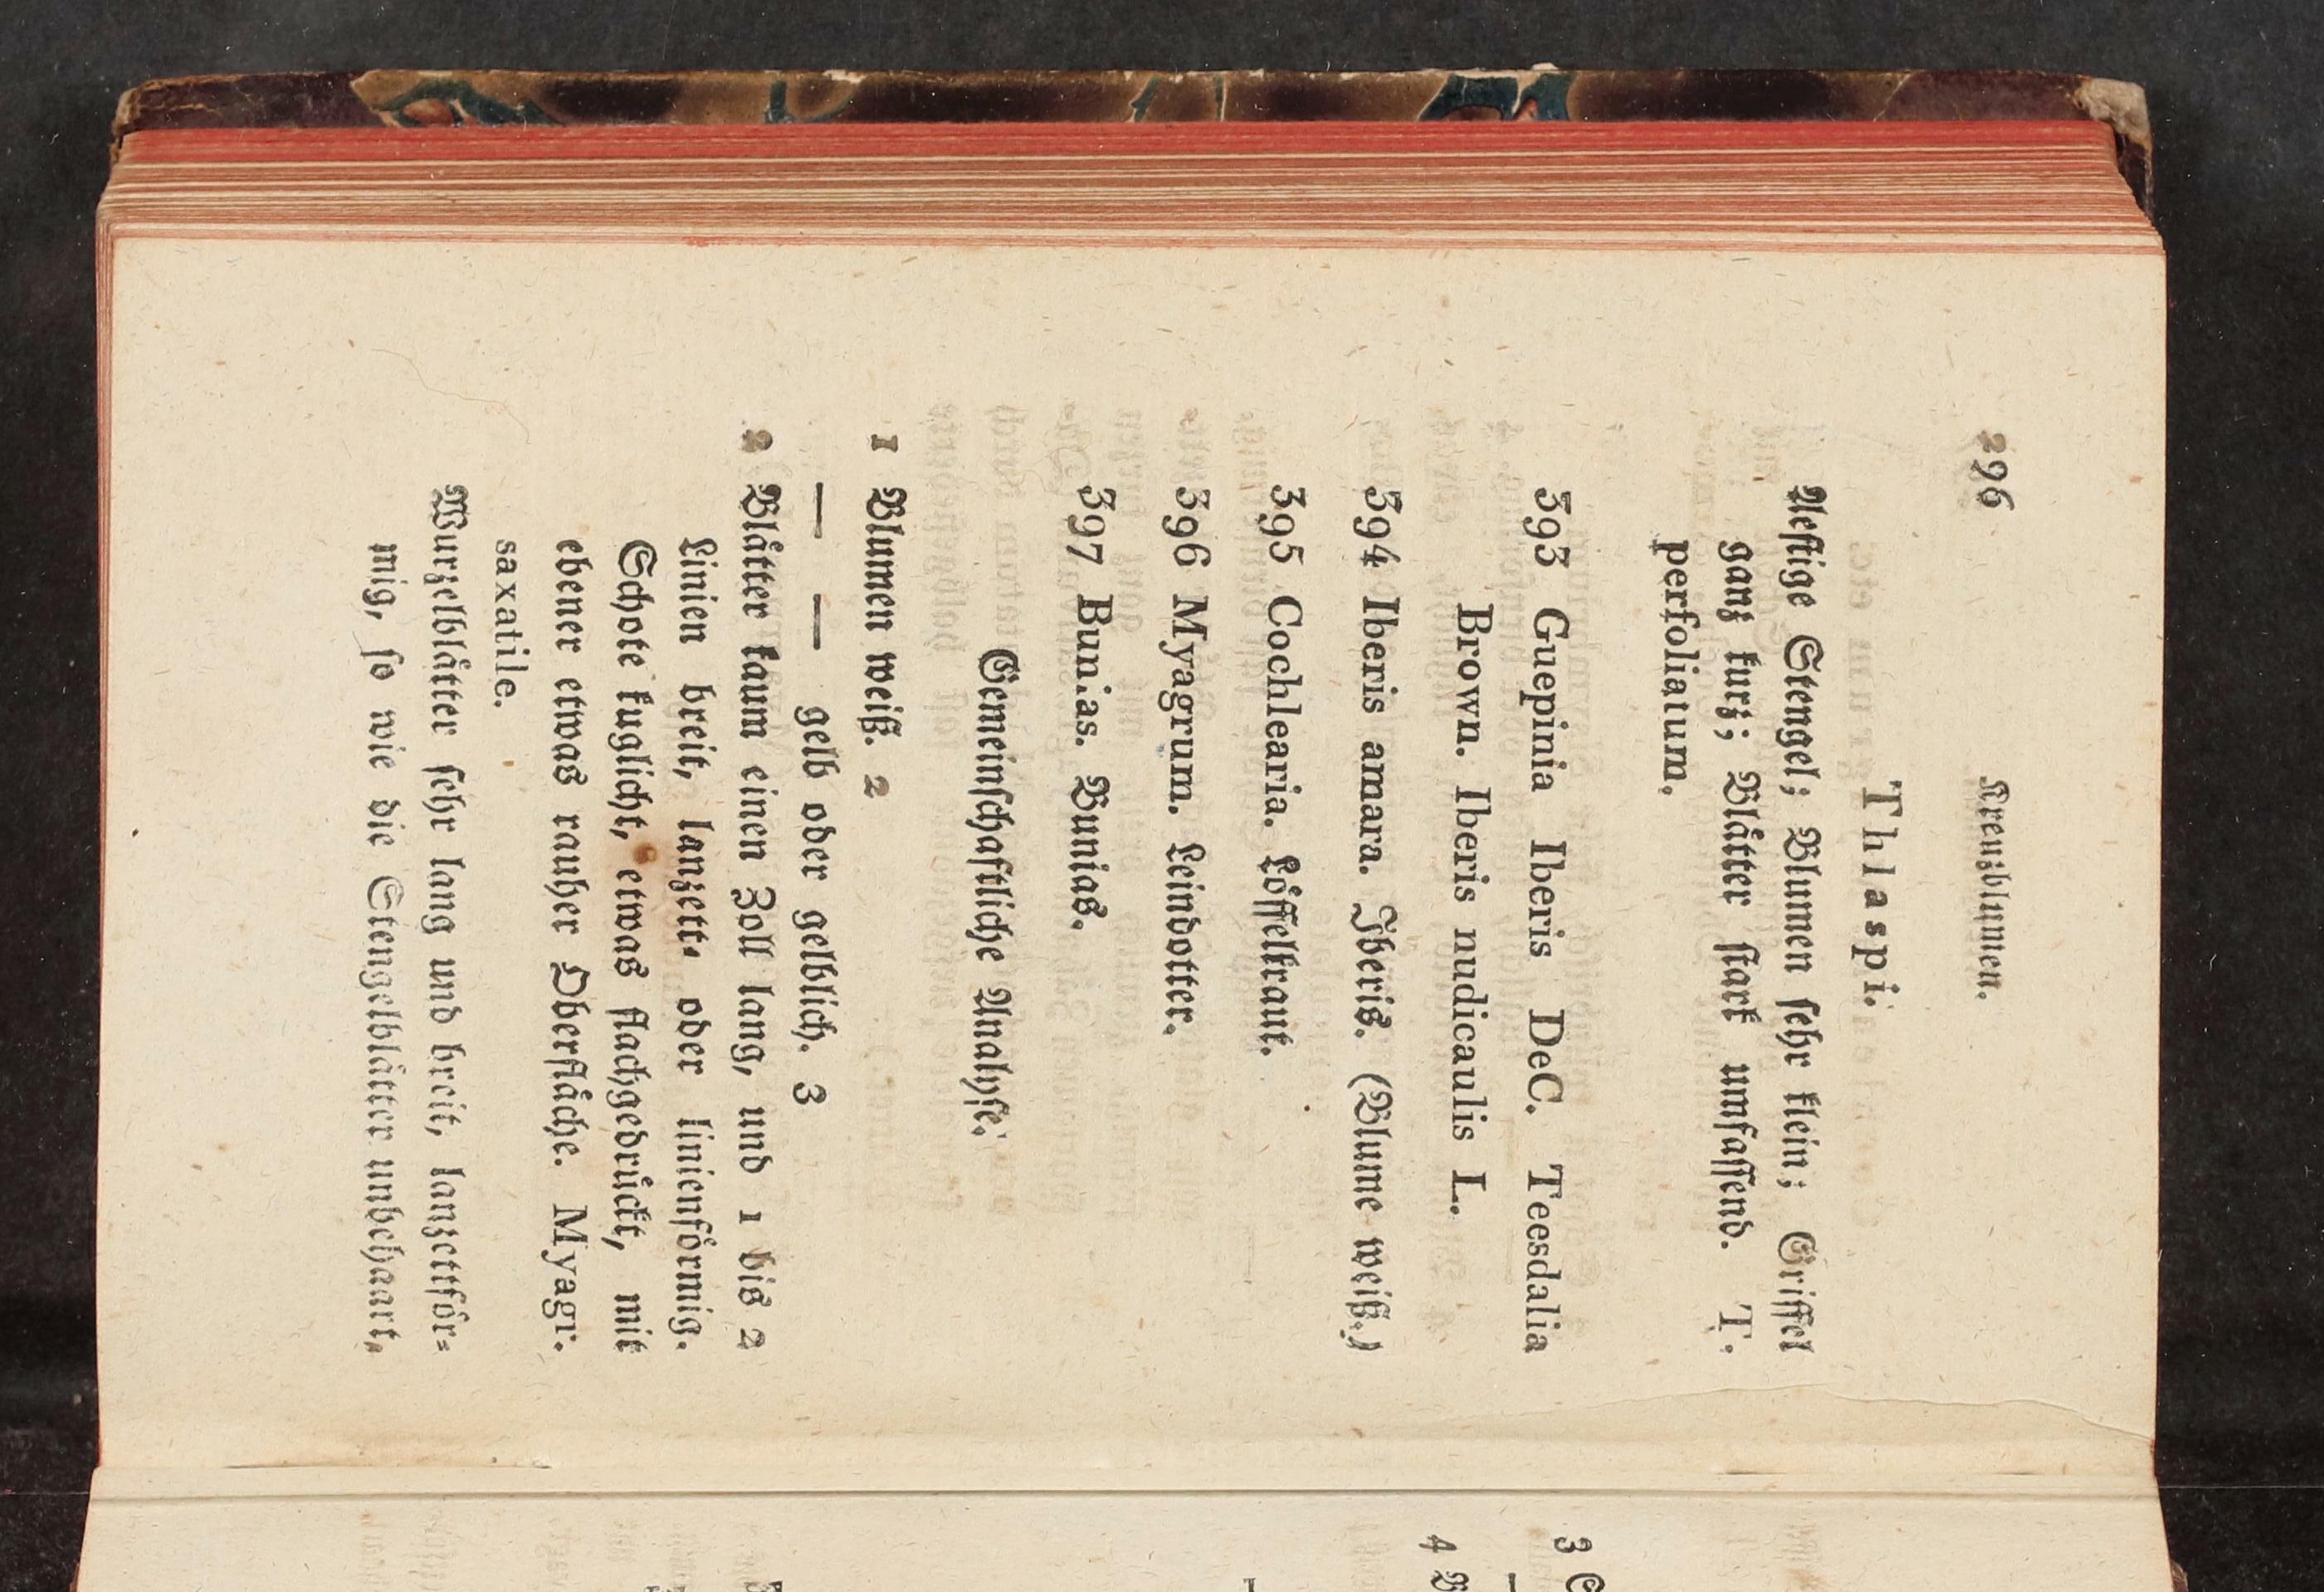 296 Kreuzblumen.
Thlaspi.
Aestige Stengel; Blumen sehr klein; Griffel
ganz kurz; Blätter stark umfassend. T.
perfoliatum.
393 Guepinia Iberis DeC. Teesdalia
Brown. Iberis nudicaulis L.
394 Iberis amara. Iberis. (Blume weiß.)
395 Cochlearia. Löffelkraut.
396 Myagrum. Leindotter.
397 Bunias. Bunias.
Gemeinschaftliche Analyse.
1 Blumen weiß. 2
— — gelb oder gelblich. 3
2 Blätter kaum einen Zoll lang, und 1 bis 2
Linien breit, lanzett- oder linienförmig.
Schote kuglicht, etwas flachgedrückt, mit
ebener etwas rauher Oberfläche. Myagr.
saxatile.
Wurzelblätter sehr lang und breit, lanzettför-
mig, so wie die Stengelblätter unbehaart,
3
4